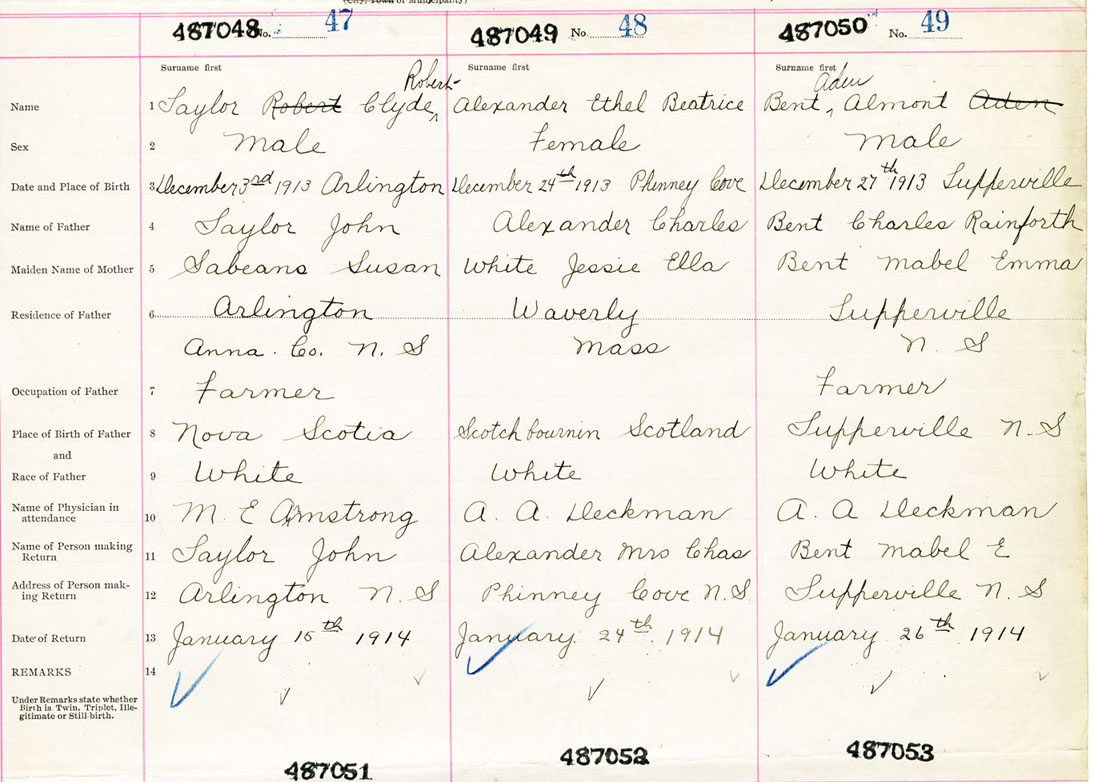 (City, Town or Municipality)
487048 No. 47 487049 No. 48 487050 No. 49
Surname first Surname first Surname first
Robert Aden
Name 1 Taylor Robert Clyde Alexander Ethel Beatrice Bent, Almont Aden
Sex 2 Male Female Male
Date and Place of Birth 3 December 3rd 1913 Arlington December 24th 1913 Phinney Cove December 27th 1913 Tupperville
Name of Father 4 Taylor John Alexander Charles Bent Charles Rainforth
Maiden Name of Mother 5 Sabeans Susan White Jessie Ella Bent Mabel Emma
Residence of Father 6 Arlington Waverly Tupperville
Anna. Co. N. S Mass N. S
Occupation of Father 7 Farmer Farmer
Place of Birth of Father 8 Nova Scotia Scotch bournin Scotland Tupperville N. S
and
Race of Father 9 White White White
Name of Physician in
attendance 10 M. E Armstrong A. A. Deckman A. A Deckman
Name of Person making
Return 11 Taylor John Alexander Mrs Chas Bent Mabel E
Address of Person mak-
ing Return 12 Arlington N. S Phinney Cove N.S. Tupperville N. S
Date of Return 13 January 15th 1914 January 24th 1914 January 26th 1914
REMARKS 14
Under Remarks state whether
Birth is Twin, Triplet, Ille-
gitimate or Still-birth.
487051 487052 487053